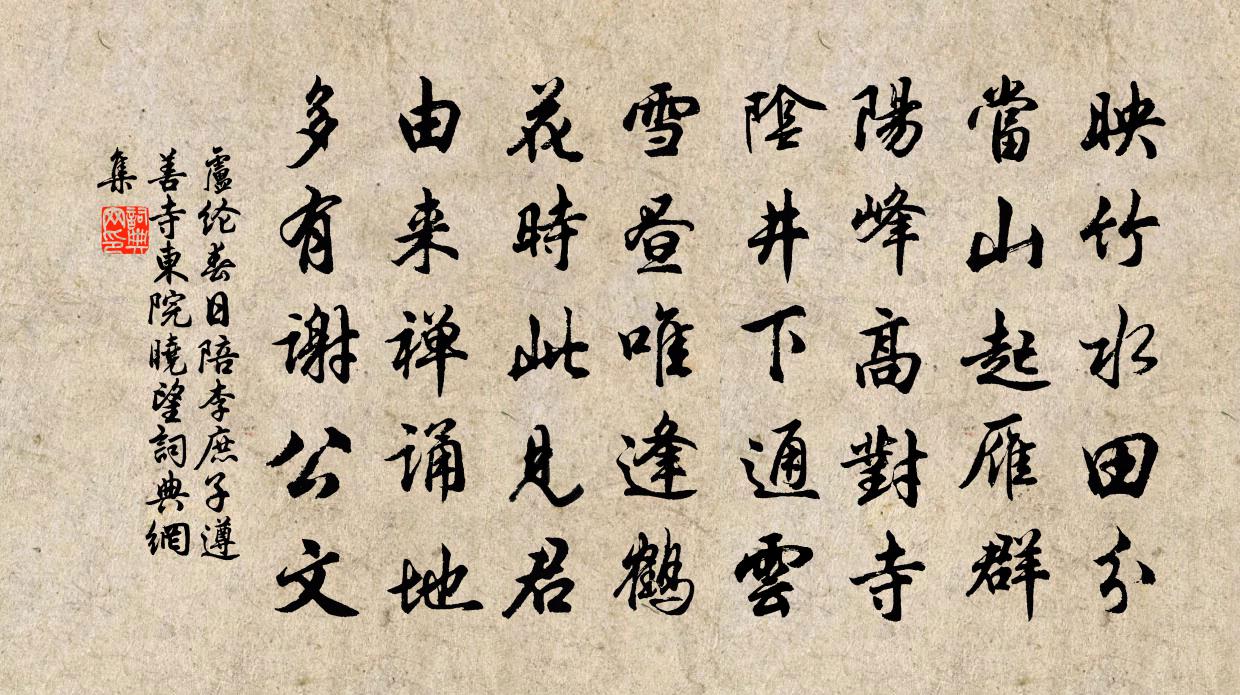 映竹水田分
當山起雁群
陽峰高對寺
陰井下通雲
雪昼唯逢鶴
花時此見君
由来禅誦地
多有谢公文
盧纶春日陪李庶子遵
善寺東院曉望詞典網
集
詞典
网印